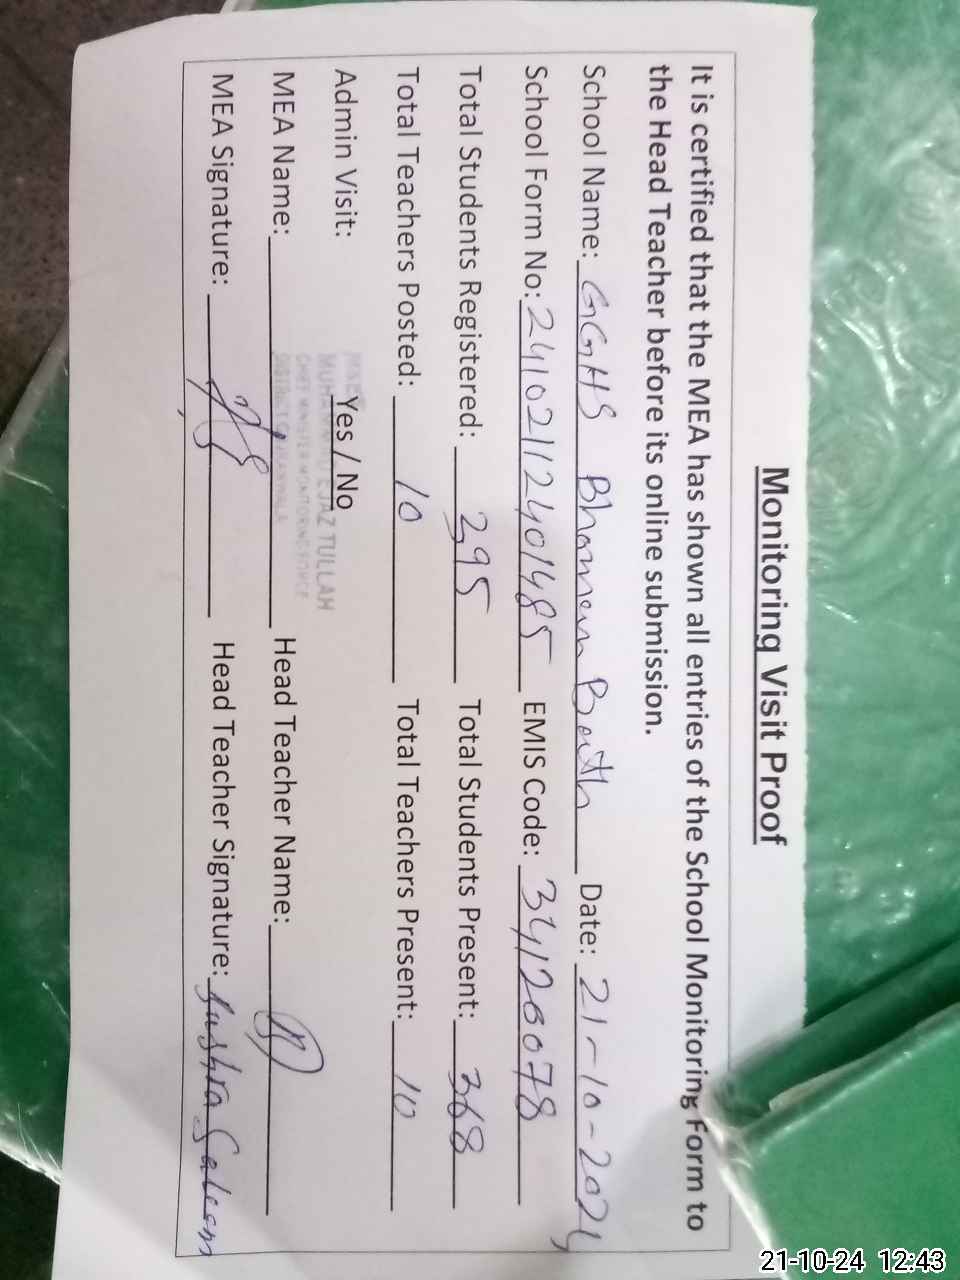 Monitoring Visit Proof
It is certified that the MEA has shown all entries of the School Monitoring Form to
the Head Teacher before its online submission.
School Name: GGHS Bhamein Bath Date: 21-10-2024
School Form No: 24102112401485 EMIS Code: 34120078
Total Students Registered: 295 Total Students Present: 368
Total Teachers Posted: 10 Total Teachers Present: 10
Admin Visit: Yes / No
MUHAMMAD EJAZ TULLAH
CHIEF MINISTER MONITORING FORCE
MEA Name: Head Teacher Name:
MEA Signature: Head Teacher Signature: Bushra Saleem
21-10-24 12:43